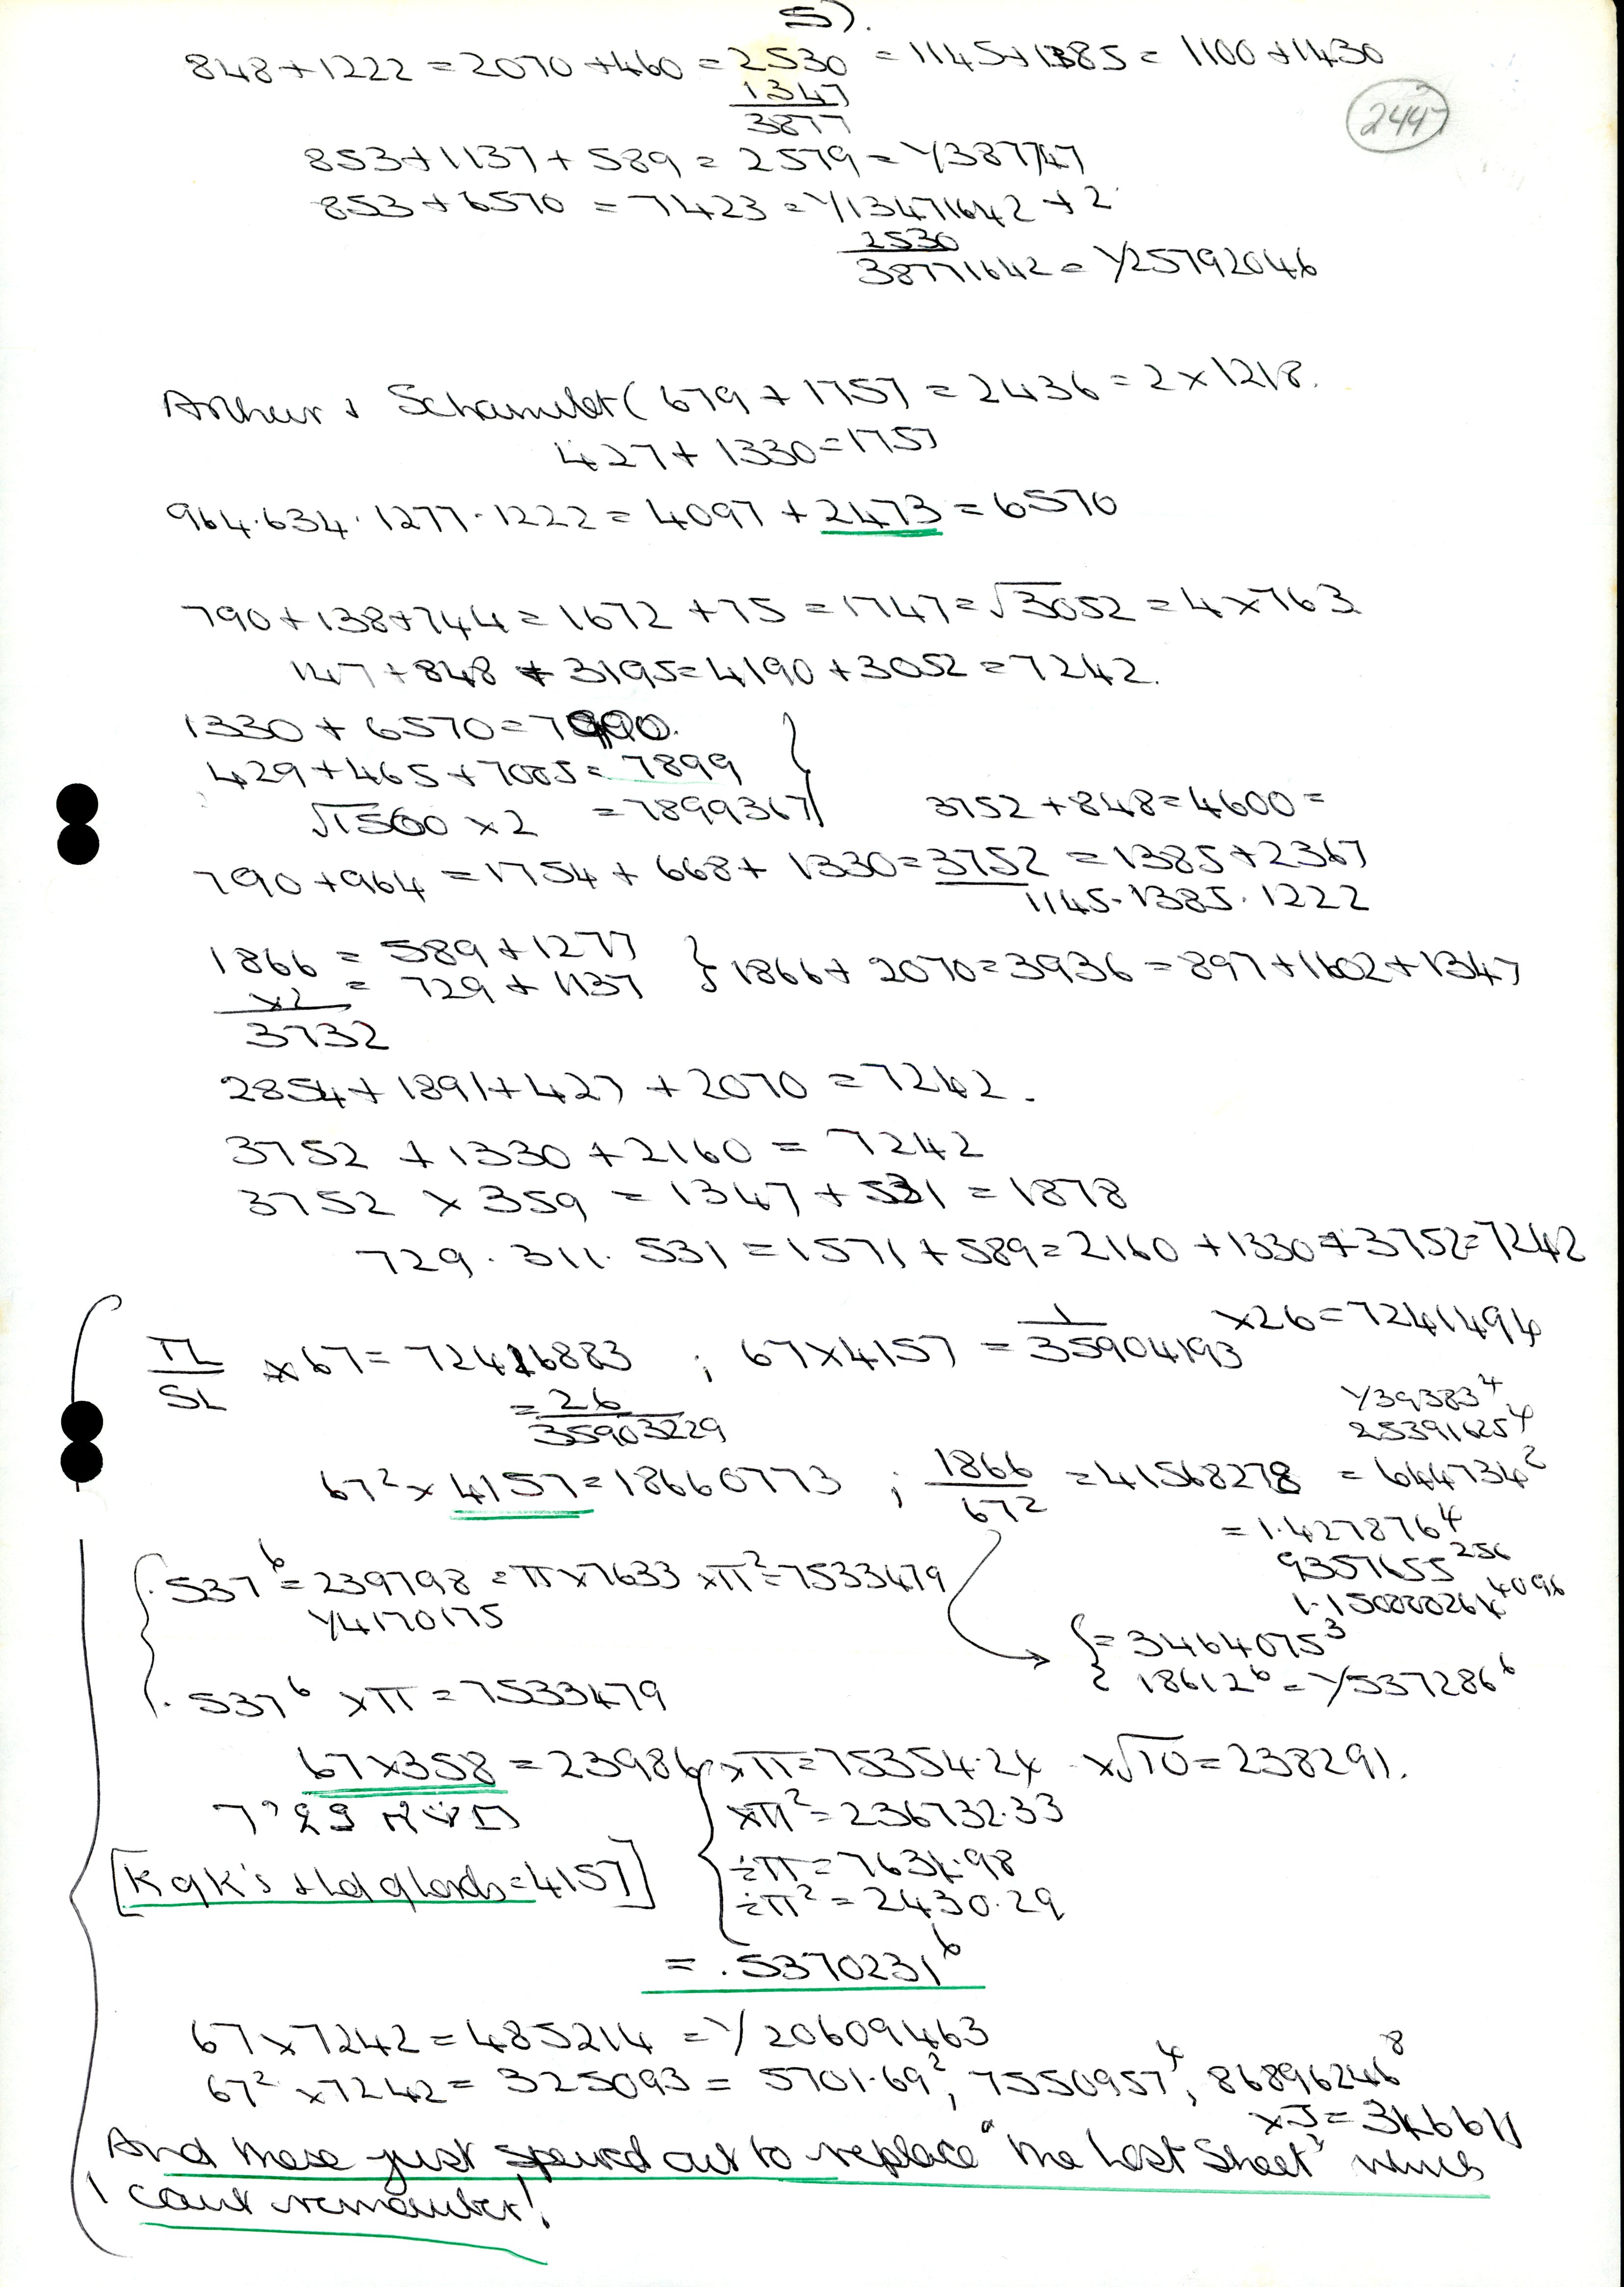 5).
848+1222 = 2070 +460 = 2530 = 1145+1385 = 1100 +1430
1347
3877
244
853+1137+ 589 = 2579 = 1/387747
853 + 6570 = 7423 = 1/13471642 + 2
2530
38771642 = 1/25792046
Arthur & (679 + 1757 = 2436 = 2 x 1218.
427+ 1330=1757
964.634.1277.1222 = 4097 + 2473 = 6570
790+138+744 = 1672 +75 = 1747 = √3052 = 4x763
147+848 + 3195=4190+3052 = 7242.
1330 + 6570=7900.
429+465+7005= 7899
√1560 x2 = 7899367
3752 +848=4600 =
790+964 = 1754 + 668+ 1330=3752 = 1385+2367
1145.1385.1222
1866 = 589+1277 } 1866+ 2070=3936 = 897+1602+1347
x2 = 729+1137
3732
2854+1891+427 +2070 = 7242.
3752 +1330 +2160 = 7242
3752 x 359 = 1347 + 531 = 1878
729.311.531 = 1571+589=2160 +1330+3752=7242
TL/SL x67= 72416883 ; 67x4157 = 1/35904193 x26=7241494
= 26/35903229
1/39383⁴
25391625⁴
67² x 4157=18660773 ; 1866/67² = 41568278 = 644734²
= 1.4278764⁴
9357655²⁵⁶
{.537⁶= 239798 = π x7633 xπ²=7533479
1/4170175
{= 3464075³
18612⁶ = 1/537286⁶
.537⁶ xπ = 7533479
67x358 = 23986 xπ=75354.24 x√10=238291.
xπ²= 236732.33
[K of K's & Ld of Lords=4157]
÷π = 7634.98
÷π² = 2430.29
= .5370231⁶
67x7242=485214 = 1/20609463
67² x7242= 325093 = 5701.69², 7550957⁴, 86896246⁸
And these just spewed out to replace "the Lost Sheet" which
I cant remember!